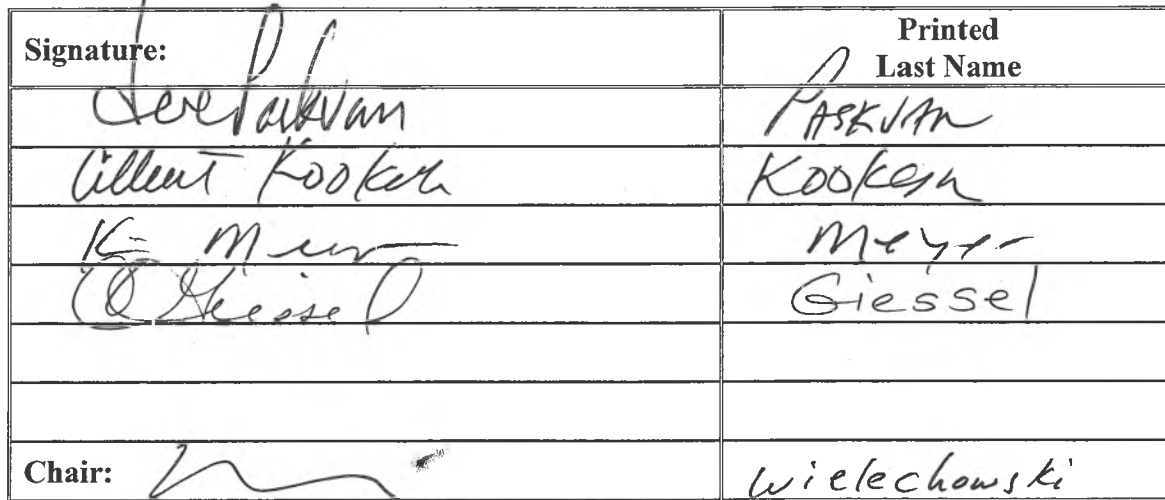 Signature: Printed
Last Name
Paskvan PASKVAN
Albert Kookesh Kookesh
K Meyer Meyer
C Giessel Giessel
Chair: Wielechowski